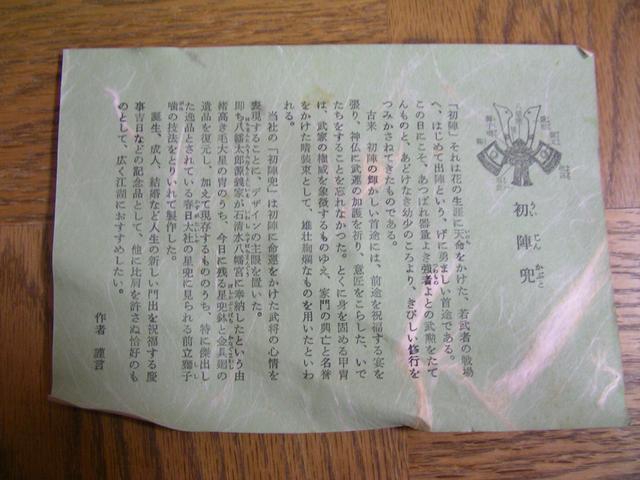 初陣兜
「初陣」それは花の生涯に天命をかけた、若武者の戦場
へ、はじめて出陣という、げに勇ましい首途である。
この日にこそ、あっぱれ器量よき強者よとの武勲をたて
んものと、あどけなき幼少のころより、きびしい修行を
つみかさねてきたものである。
古来 初陣の輝かしい首途には、前途を祝福する宴を
張り、神仏に武運の加護を祈り、意匠をこらした、いで
たちをすることを忘れなかった。とくに身を固める甲冑
は、武家の権威を象徴するものゆえ、家門の興亡と名誉
をかけた晴装束として、雄壮絢爛なものを用いたといわ
れる。
当社の「初陣兜」は初陣に命運をかけた武将の心情を
表現することに、デザインの主眼を置いた。
即ち八幡太郎源義家が石清水八幡宮に奉納したという由
緒高き毛大星の冑のうち、今日に残る星兜鉢と金具廻の
遺品を復元し、加えて現存するもののうち、特に傑出し
た逸品とされている春日大社の星兜に見られる前立獅子
噛の技法をとりいれて製作した。
誕生、成人、結婚など人生の新しい門出を祝福する慶
事吉日などの記念品として、他に比肩を許さぬ恰好のも
のとして、広く江湖におすすめしたい。
作者 謹言